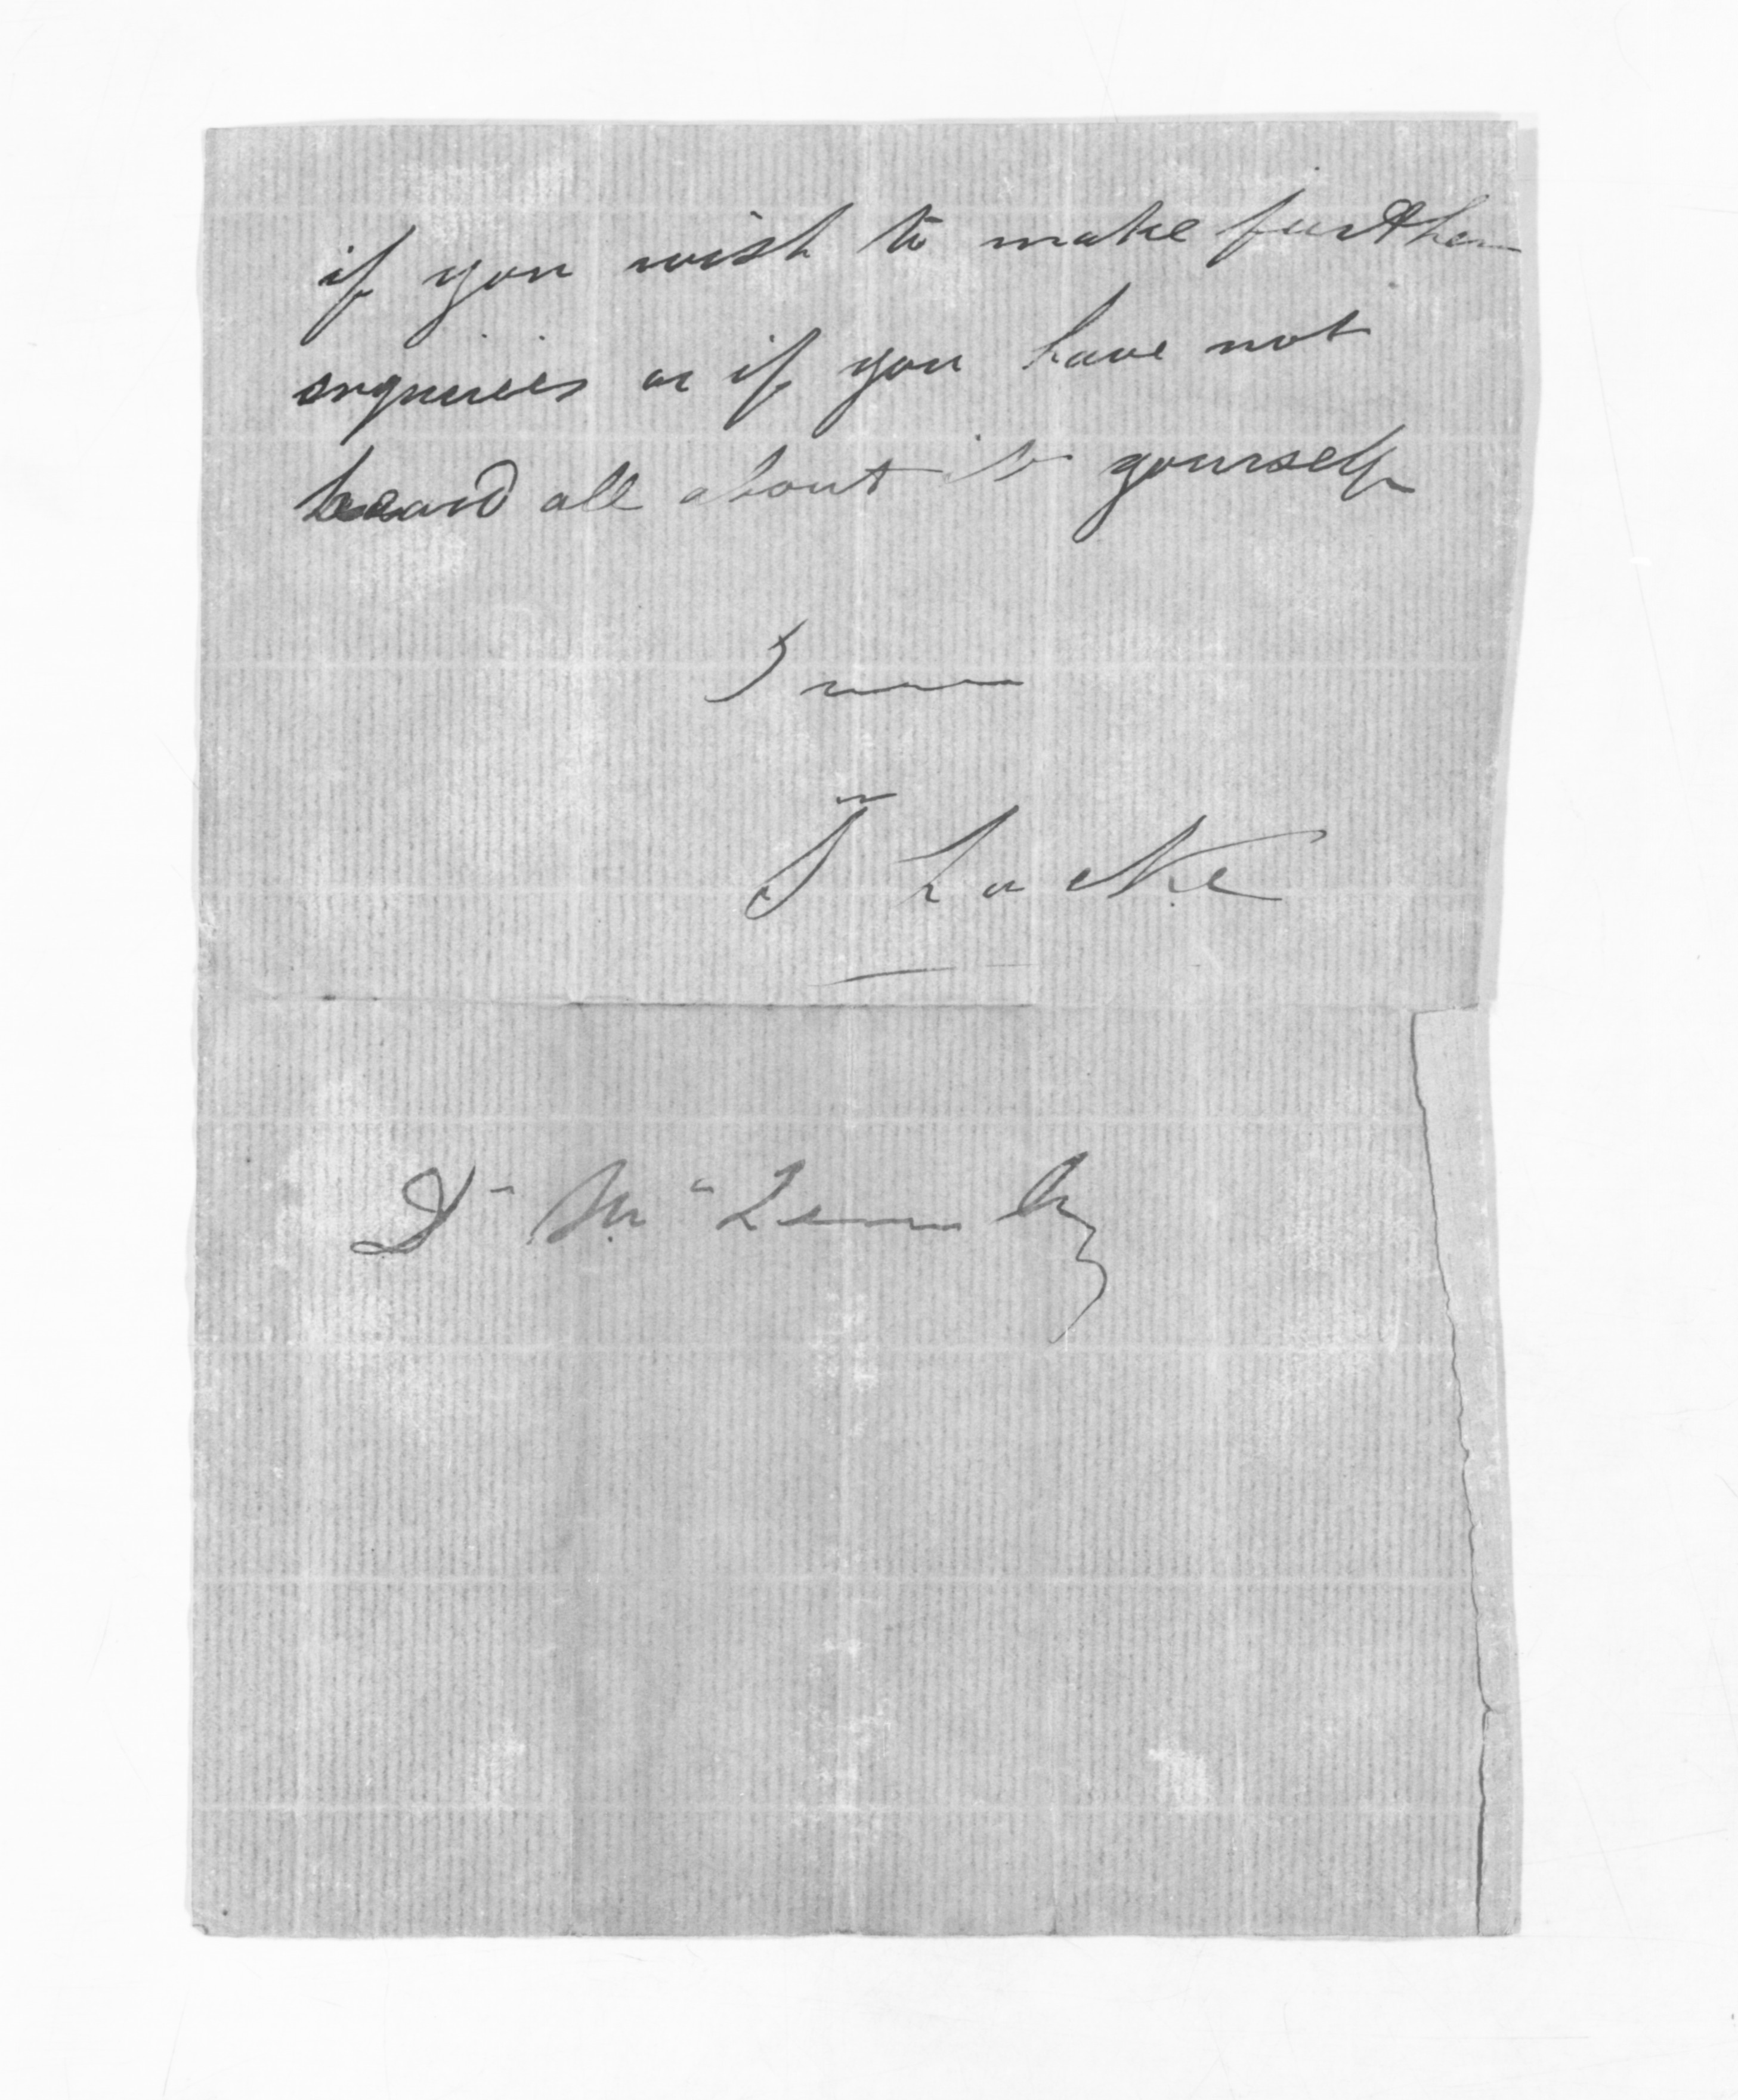 if you wish to make further
enquiries or if you have not
heard all about it yourself
S Locke